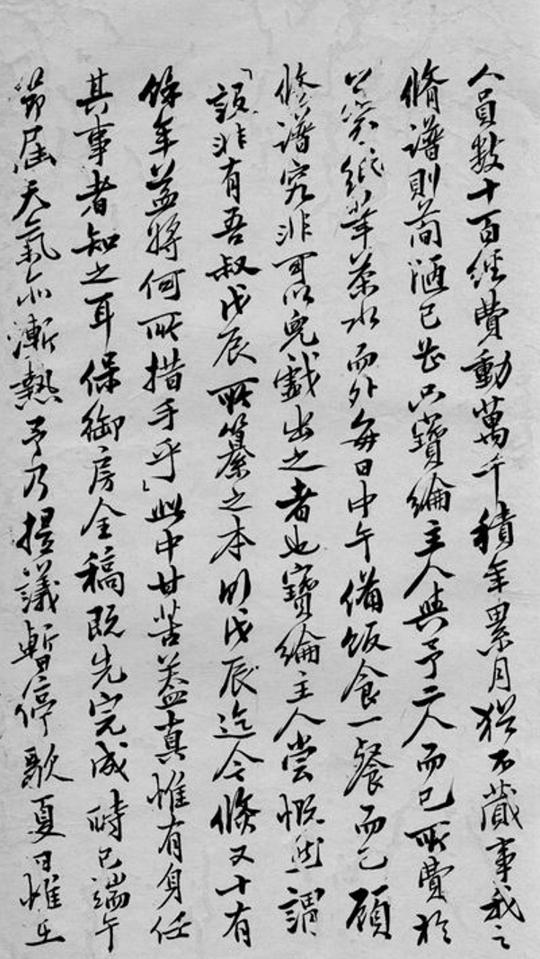 人員數十百經費動萬千積年累月猶不蕆事我之
脩譜則簡陋已甚只寶綸主人與予二人而已所費於
公眾紙筆茶水而外每日中午備飯食一餐而已顧
修譜究非可以兒戲出之者也寶綸主人嘗慨然謂
「設非有吾叔戊辰所纂之本則戊辰迄今倏又十有
餘年益將何所措手乎」此中甘苦蓋真惟有身任
其事者知之耳保御房全稿既先完成時已端午
節屆天氣亦漸熱予乃提議暫停歇夏日惟在